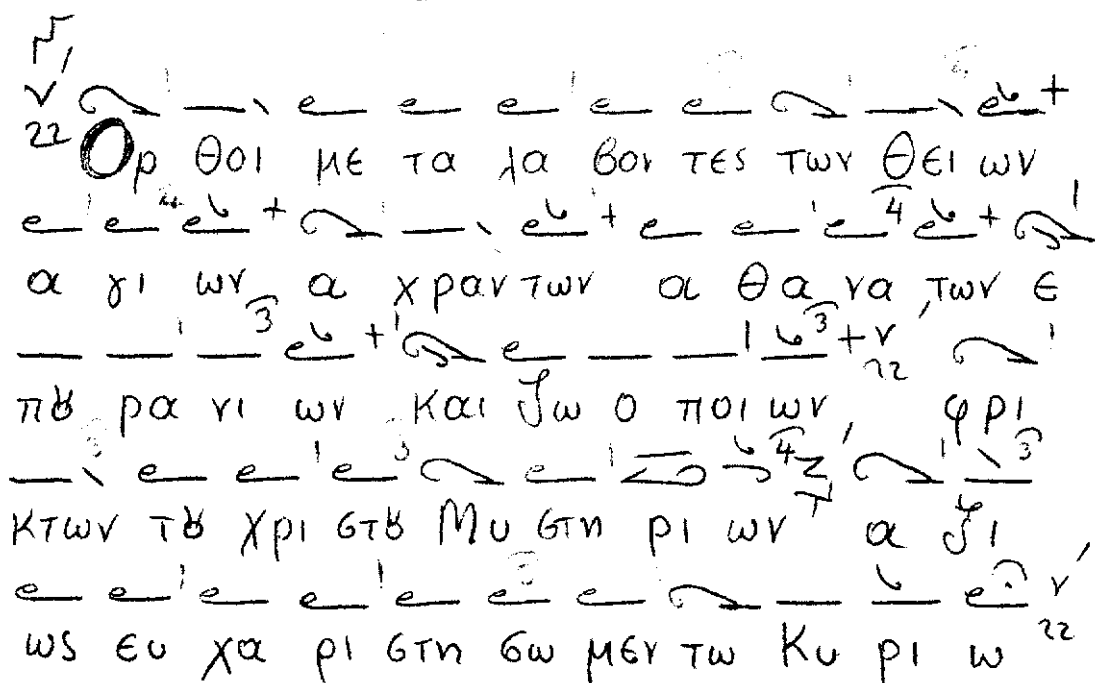 Ορ θοι με τα λα βον τες των θει ων
α γι ων α χραν των α θα να των ε
πȣ ρα νι ων και ζω ο ποι ων φρι
κτων τȣ χρι στȣ Μυ στη ρι ων α ξι
ως ευ χα ρι στη σω μεν τω Κυ ρι ω